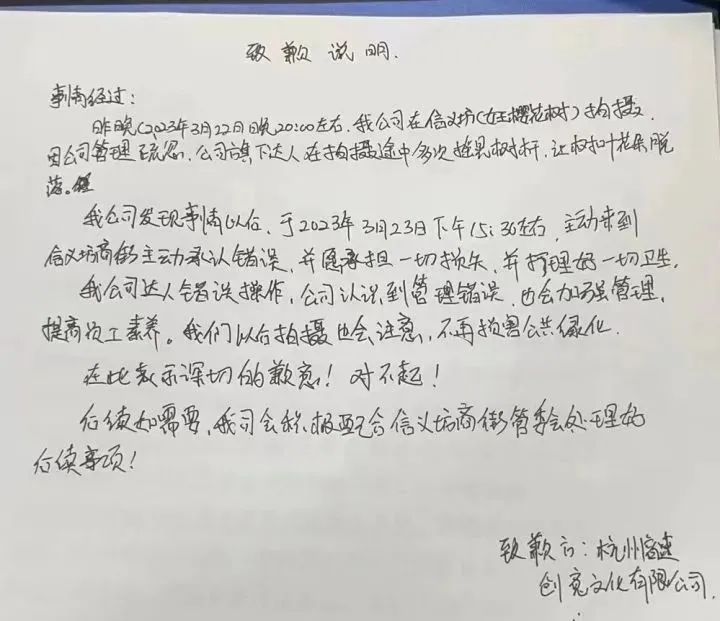 致歉说明.
事情经过：
昨晚(2023年3月22日晚20:00左右，我公司在信义坊(女王樱花树)拍摄，
因公司管理疏忽，公司旗下达人在拍摄途中多次摇晃树杆，让树叶花朵脱
落。
我公司发现事情以后，于2023年3月23日下午15:30左右，主动来到
信义坊商街主动承认错误，并愿承担一切损失，并打理好一切卫生，
我公司达人错误操作，公司认识到管理错误，也会加强管理，
提高员工素养。我们以后拍摄也会注意，不再损害公共绿化.
在此表示深切的歉意！对不起！
后续如需要，我司会积极配合信义坊商街管委会处理好
后续事项！
致歉方：杭州
创意文化有限公司.